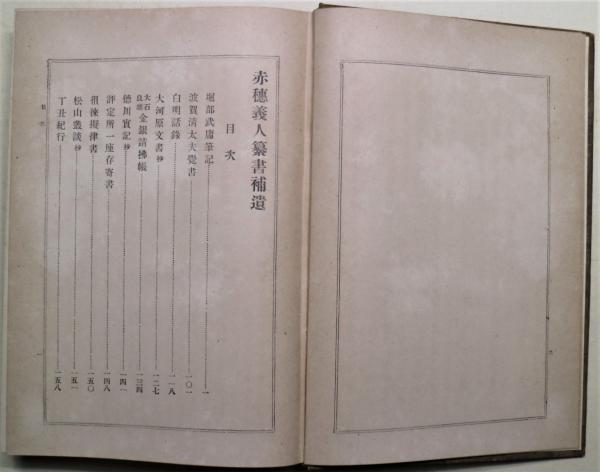 赤穗義人纂書補遺
目次
堀部武庸筆記 一
波賀淸太夫覺書 一〇一
白明話錄 一一八
大河原文書抄 一二七
大石良雄金銀請拂帳 一三四
德川實記抄 一四一
評定所一座存寄書 一四八
徂徠擬律書 一五〇
松山叢談抄 一五一
丁丑紀行 一五八
目次